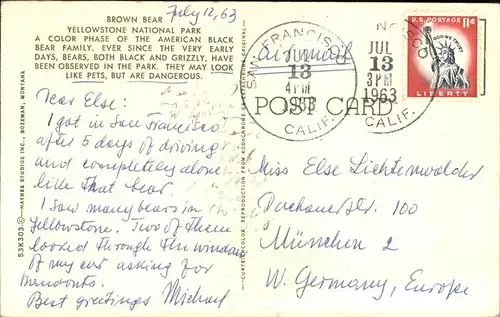 BROWN BEAR
July 12, 63
YELLOWSTONE NATIONAL PARK
A COLOR PHASE OF THE AMERICAN BLACK
BEAR FAMILY. EVER SINCE THE VERY EARLY
DAYS, BEARS, BOTH BLACK AND GRIZZLY, HAVE
BEEN OBSERVED IN THE PARK. THEY MAY LOOK
LIKE PETS, BUT ARE DANGEROUS.
Dear Else:
I got in San Francisco
after 5 days of driving
and completely alone
like that bear.
I saw many bears in the
Yellowstone. Two of them
looked through the window
of my car asking for
Best greetings Michael
53X303 © HAYNES STUDIOS INC., BOZEMAN, MONTANA
CURTEICHCOLOR REPRODUCTION FROM KODACHROME OR EKTACHROME ORIGINAL
Airmail
SAN FRANCISCO
JUL
13
4PM
1963
CALIF.
JUL
13
3PM
1963
CALIF.
U.S. POSTAGE 11¢
IN GOD WE TRUST
LIBERTY
POST CARD
Miss Else Lichtenwalder
Dachauerstr. 100
München 2
W. Germany, Europe